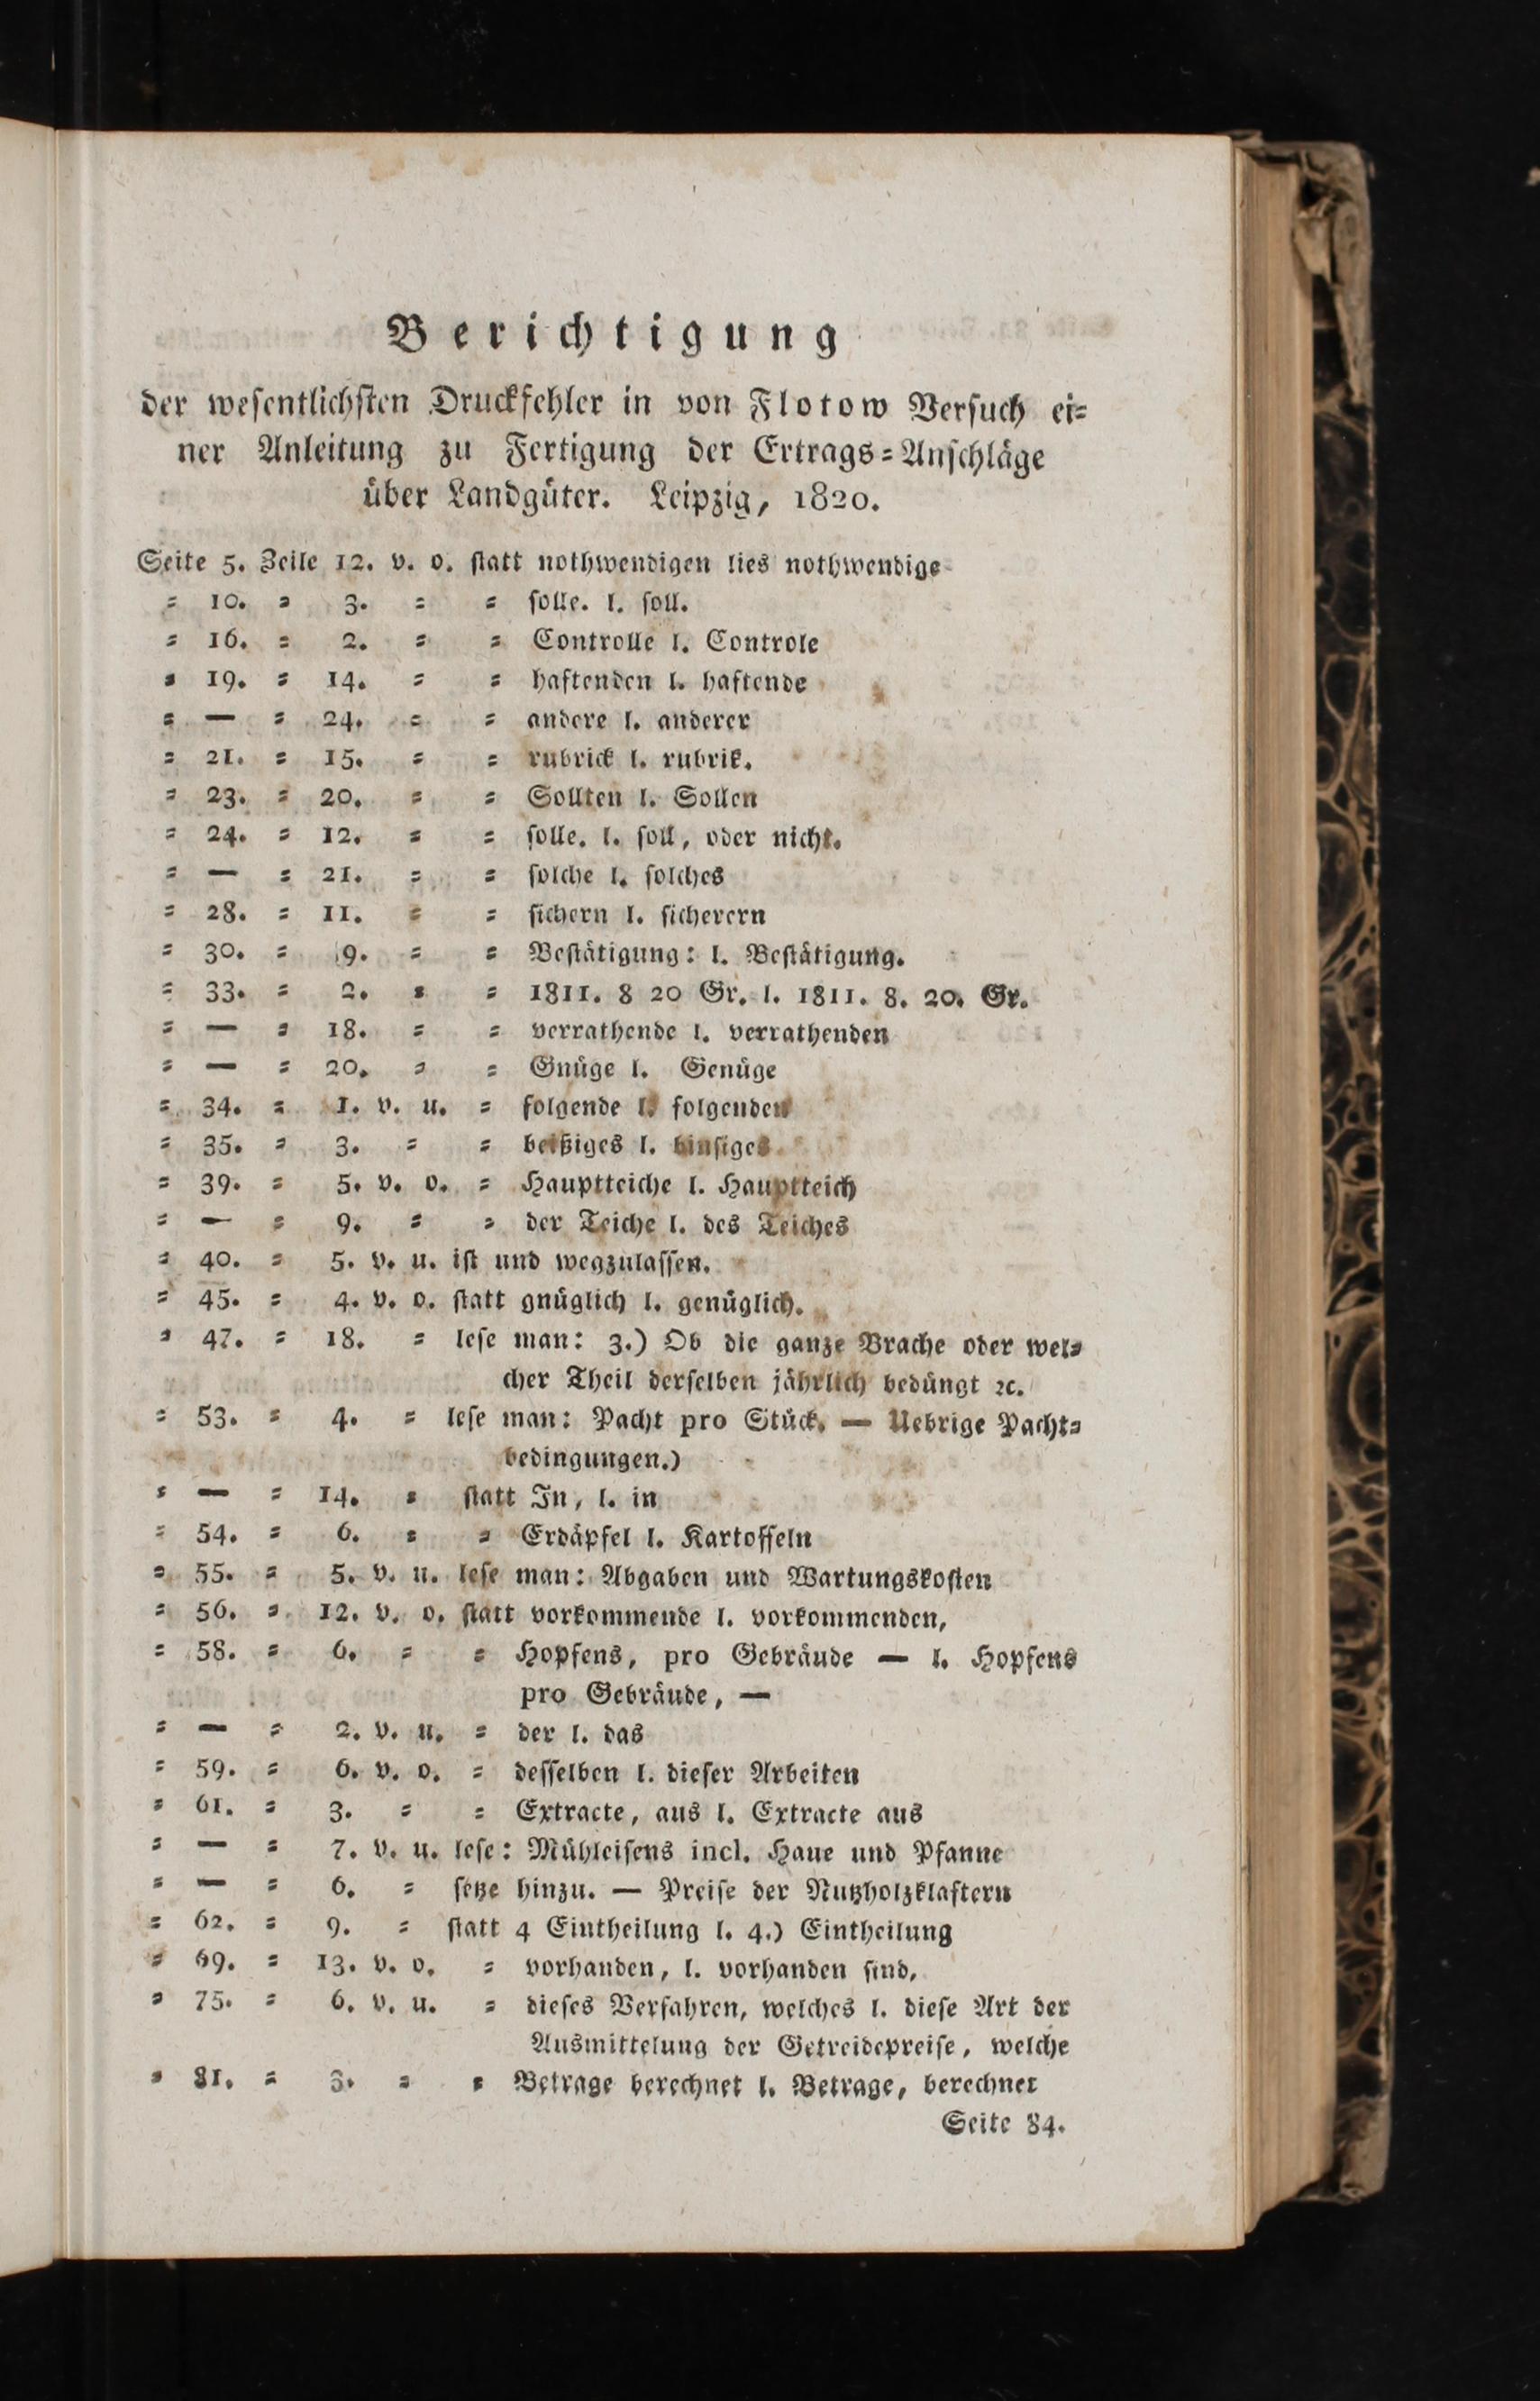 Berichtigung
der wesentlichsten Druckfehler in von Flotow Versuch ei=
ner Anleitung zu Fertigung der Ertrags=Anschläge
über Landgüter. Leipzig, 1820.
Seite 5. Zeile 12. v. o. statt nothwendigen lies nothwendige
= 10. = 3. = = solle. l. soll.
= 16. = 2. = = Controlle l. Controle
= 19. = 14. = = haftenden l. haftende
= — = 24. = = andere l. anderer
= 21. = 15. = = rubrick l. rubrik.
= 23. = 20. = = Sollten l. Sollen
= 24. = 12. = = solle. l. soll, oder nicht.
= — = 21. = = solche l. solches
= 28. = 11. = = sichern l. sicherern
= 30. = 9. = = Bestätigung: l. Bestätigung.
= 33. = 2. = = 1811. 8 20 Gr. l. 1811. 8. 20. Gr.
= — = 18. = = verrathende l. verrathenden
= — = 20. = = Gnüge l. Genüge
= 34. = 1. v. u. = folgende l. folgenden
= 35. = 3. = = beißiges l. binsiges
= 39. = 5. v. o. = Hauptteiche l. Hauptteich
= — = 9. = = der Teiche l. des Teiches
= 40. = 5. v. u. ist und wegzulassen.
= 45. = 4. v. o. statt gnüglich l. genüglich.
= 47. = 18. = lese man: 3.) Ob die ganze Brache oder wel=
cher Theil derselben jährlich bedüngt ꝛc.
= 53. = 4. = lese man: Pacht pro Stück. — Uebrige Pacht=
bedingungen.)
= — = 14. = statt In, l. in
= 54. = 6. = = Erdäpfel l. Kartoffeln
= 55. = 5. v. u. lese man: Abgaben und Wartungskosten
= 56. = 12. v. o. statt vorkommende l. vorkommenden,
= 58. = 6. = = Hopfens, pro Gebräude — l. Hopfens
pro Gebräude, —
= — = 2. v. u. = der l. das
= 59. = 6. v. o. = desselben l. dieser Arbeiten
= 61. = 3. = = Extracte, aus l. Extracte aus
= — = 7. v. u. lese: Mühleisens incl. Haue und Pfanne
= — = 6. = setze hinzu. — Preise der Nutzholzklaftern
= 62. = 9. = statt 4 Eintheilung l. 4.) Eintheilung
= 69. = 13. v. o. = vorhanden, l. vorhanden sind,
= 75. = 6. v. u. = dieses Verfahren, welches l. diese Art der
Ausmittelung der Getreidepreise, welche
= 81. = 3. = = Betrage berechnet l. Betrage, berechnet
Seite 84.